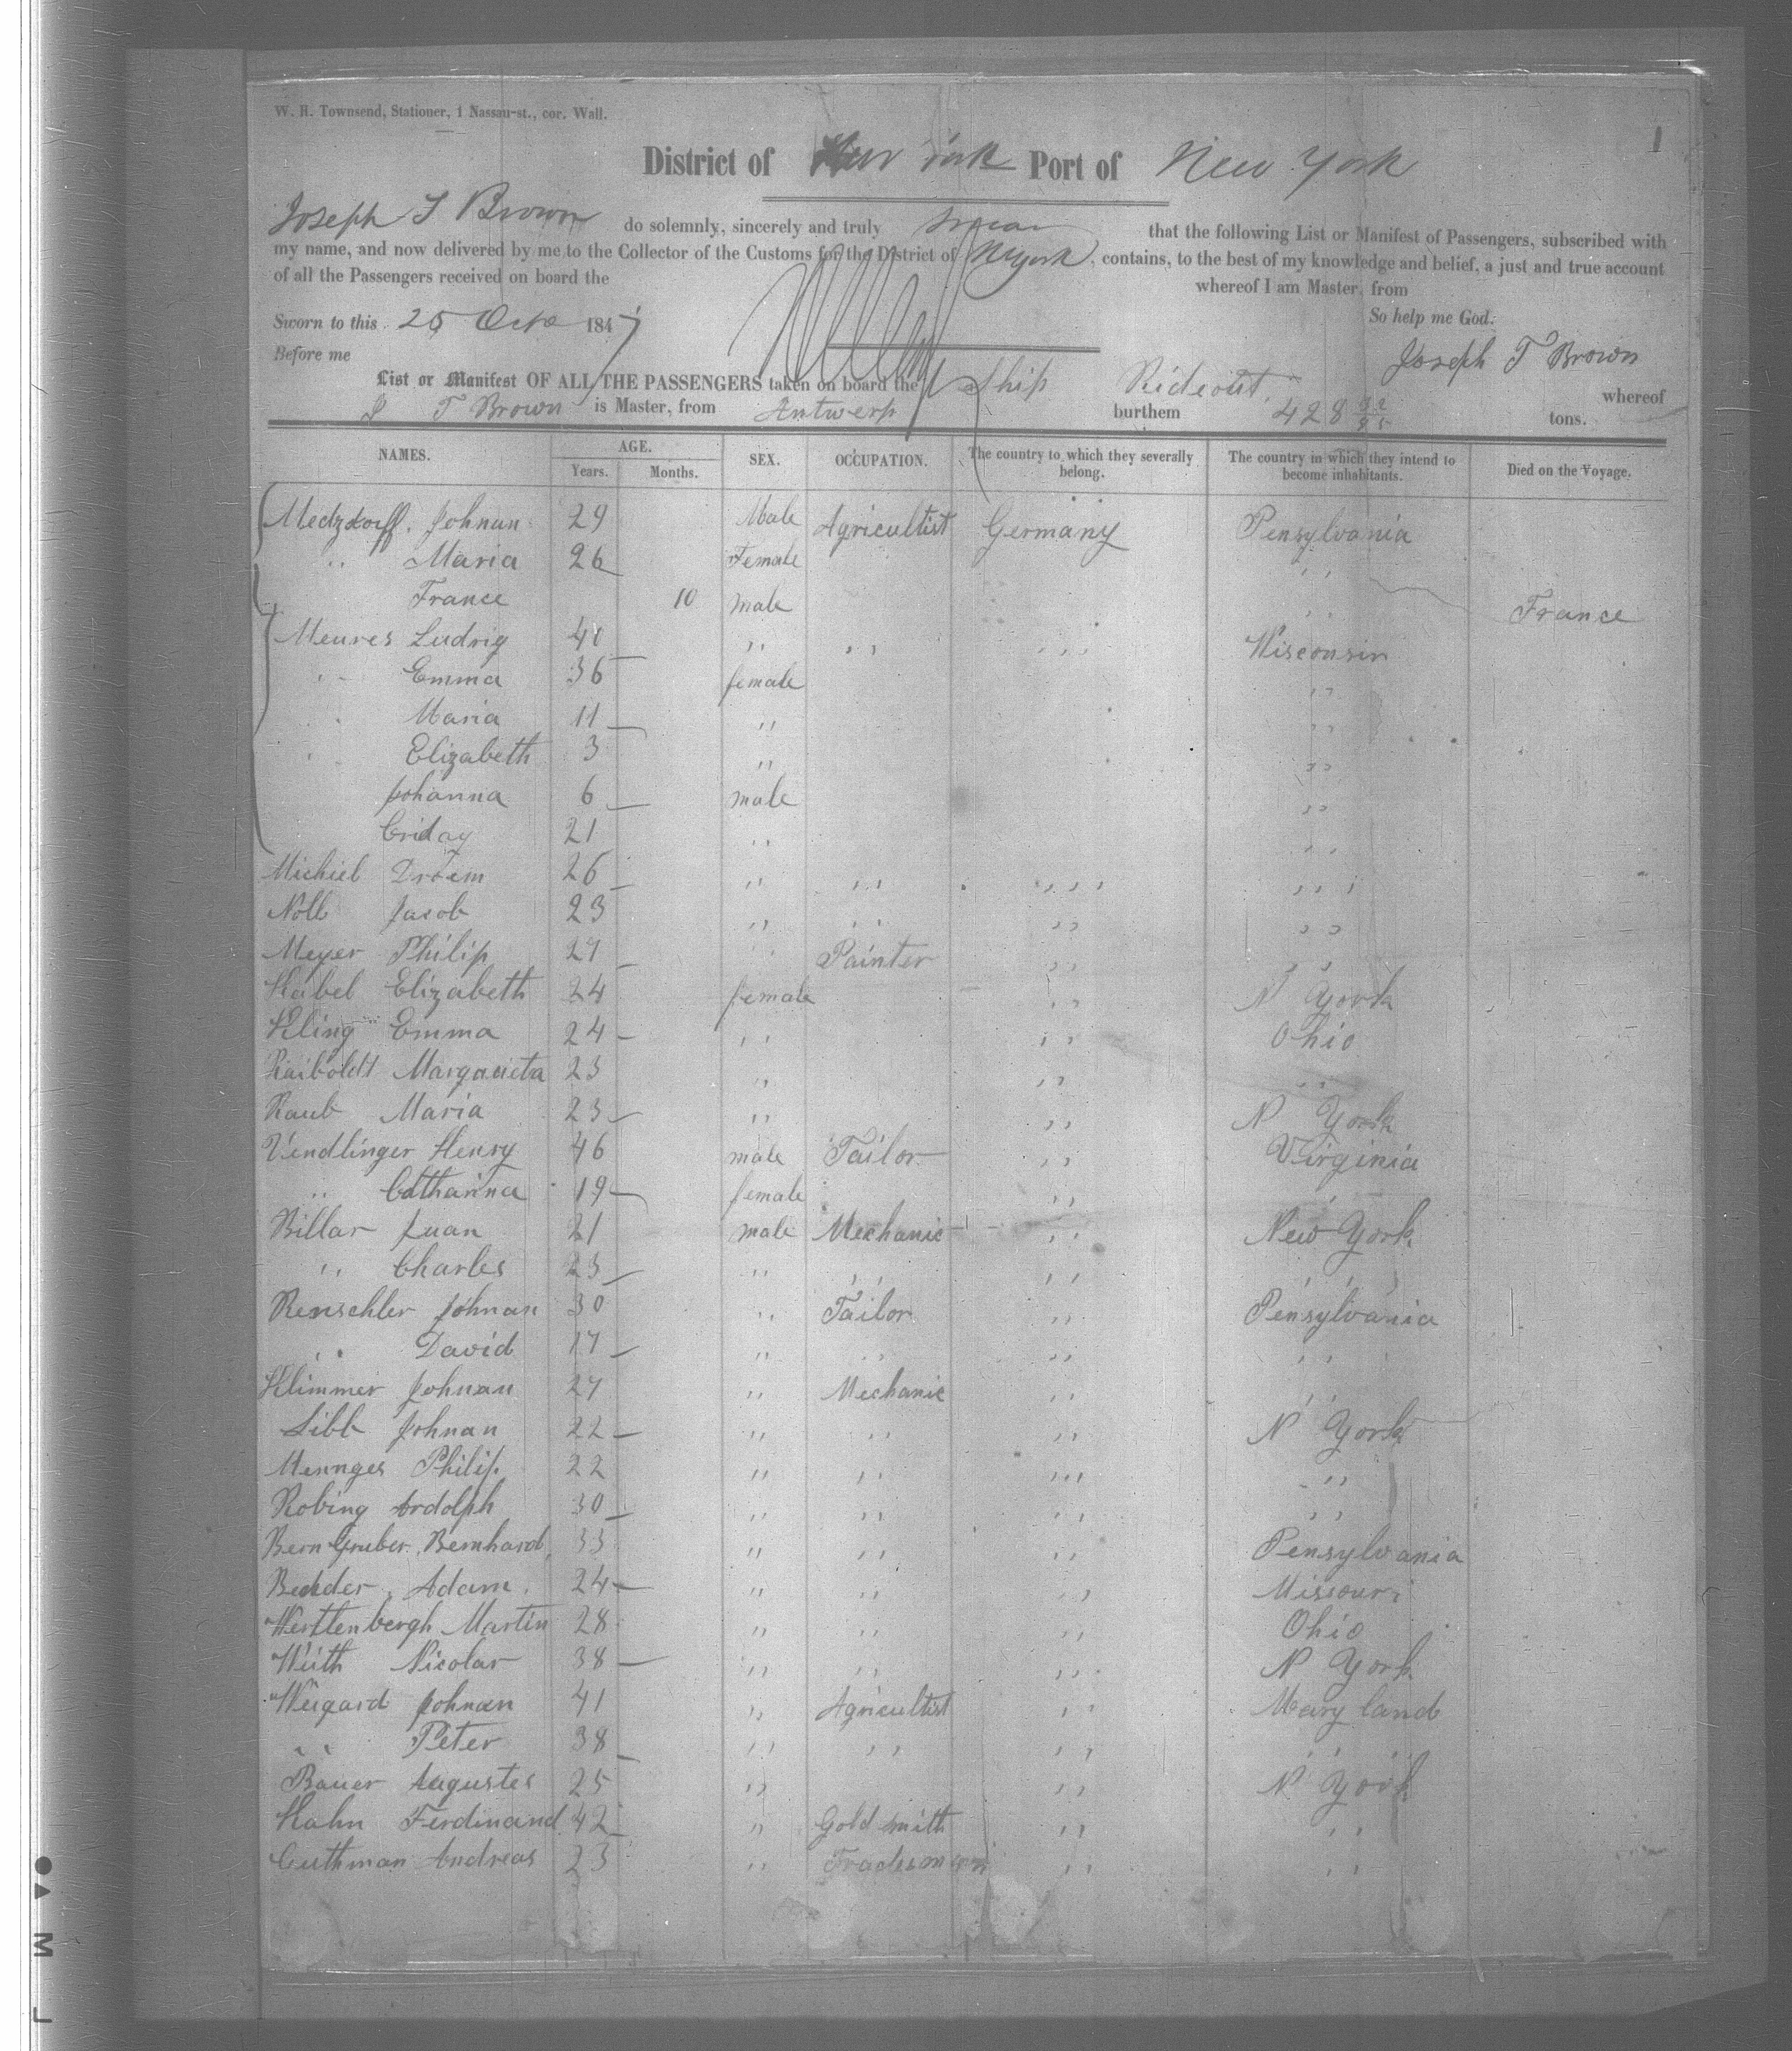 W. H. Townsend, Stationer, 1 Nassau-st., cor. Wall.
1
District of New York Port of New York
Joseph T Brown do solemnly, sincerely and truly swear that the following List or Manifest of Passengers, subscribed with
my name, and now delivered by me to the Collector of the Customs for the District of NYork, contains, to the best of my knowledge and belief, a just and true account
of all the Passengers received on board the whereof I am Master, from
Sworn to this 25 Octo 1847 So help me God.
Before me Joseph T Brown
List or Manifest OF ALL THE PASSENGERS taken on board the Ship Rideout whereof
J T Brown is Master, from Antwerp burthem 428 32/95 tons.
NAMES. AGE. Years. Months. SEX. OCCUPATION. The country to which they severally belong. The country in which they intend to become inhabitants. Died on the Voyage.
Medzdorff. Johnan 29 Male Agricultist Germany Pensylvania
" Maria 26 Female "
France 10 male " France
Meures Ludrig 40 " " " Wisconsin
" Emma 36 female "
" Maria 11 " "
" Elizabeth 3 " "
Johanna 6 male "
Criday 21 " "
Michiel Droem 26 " " " "
Nolb Jacob 23 " " " "
Meyer Philip 27 " Painter " "
Habel Elizabeth 24 female " N York
Kling Emma 24 " " Ohio
Raiboldt Margarieta 23 " " "
Raub Maria 23 " " N York
Vendlinger Henry 46 male Tailor " Virginia
" Catharina 19 female " "
Billar Juan 21 male Mechanic " New York
" Charles 23 " " " "
Renschler Johnan 30 " Tailor " Pensylvania
" David 17 " " " "
Klimmer Johnan 27 " Mechanic " "
Libb Johnan 22 " " " N York
Mennges Philip 22 " " " "
Robing Ardolph 30 " " " "
Bern Gruber Bernhard 33 " " " Pensylvania
Beader Adam. 24 " " " Missouri
Werttenbergh Martin 28 " " " Ohio
Weith Nicolas 38 " " " N York
Weigard Johnan 41 " Agricultist " Mary land
" Peter 38 " " " "
Bauer Augustes 25 " " N York
Hahn Ferdinand 42 " Gold smith " "
Guthman Andreas 23 " Tradesman " "